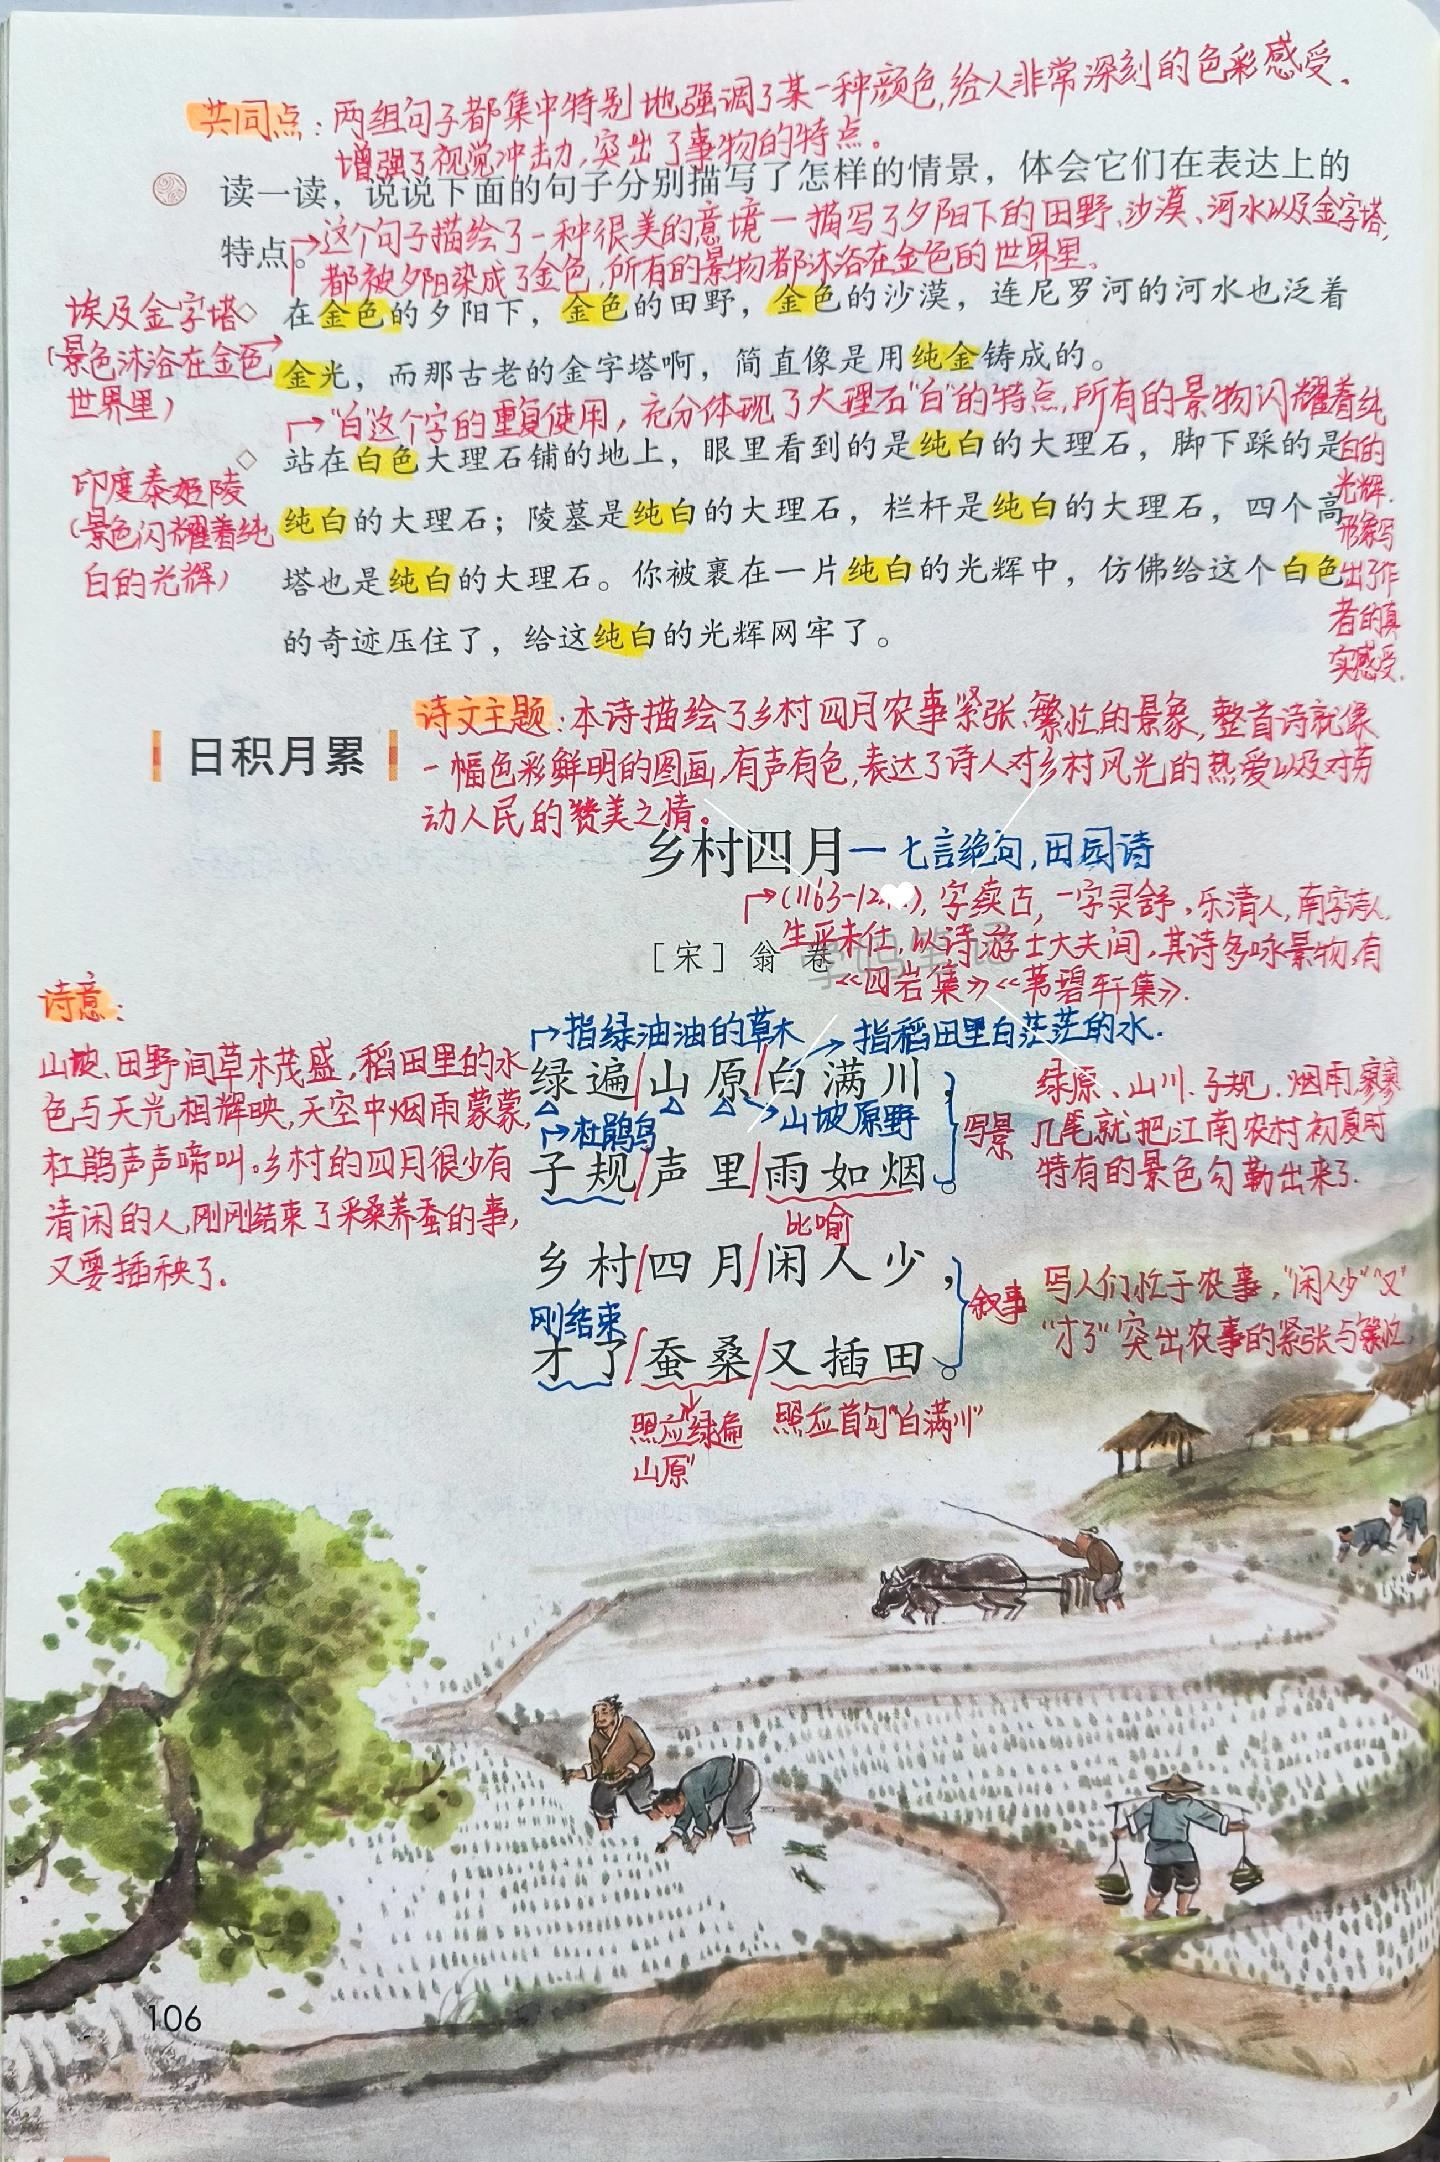 共同点：两组句子都集中特别地强调了某一种颜色，给人非常深刻的色彩感受。
增强了视觉冲击力，突出了事物的特点。
读一读，说说下面的句子分别描写了怎样的情景，体会它们在表达上的
特点。
这个句子描绘了一种很美的意境一描写了夕阳下的田野、沙漠、河水以及金字塔，
都被夕阳染成了金色，所有的景物都沐浴在金色的世界里。
埃及金字塔
（景色沐浴在金色
世界里）
在金色的夕阳下，金色的田野，金色的沙漠，连尼罗河的河水也泛着
金光，而那古老的金字塔啊，简直像是用纯金铸成的。
"白"这个字的重复使用，充分体现了大理石"白"的特点，所有的景物闪耀着纯
白的
光辉.
形象写
出了作
者的真
实感受.
印度泰姬陵
（景色闪耀着纯
白的光辉）
站在白色大理石铺的地上，眼里看到的是纯白的大理石，脚下踩的是
纯白的大理石；陵墓是纯白的大理石，栏杆是纯白的大理石，四个高
塔也是纯白的大理石。你被裹在一片纯白的光辉中，仿佛给这个白色
的奇迹压住了，给这纯白的光辉网牢了。
日积月累
诗文主题：本诗描绘了乡村四月农事紧张、繁忙的景象，整首诗就像
一幅色彩鲜明的图画，有声有色，表达了诗人对乡村风光的热爱以及对劳
动人民的赞美之情。
乡村四月一七言绝句，田园诗
字续古，一字灵舒，乐清人，南宋诗人.
生平未仕，以诗游士大夫间，其诗多咏景物，有
《四岩集》《苇碧轩集》.
［宋］翁卷
诗意：
山坡、田野间草木茂盛，稻田里的水
色与天光相辉映，天空中烟雨蒙蒙，
杜鹃声声啼叫。乡村的四月很少有
清闲的人，刚刚结束了采桑养蚕的事，
又要插秧了.
指绿油油的草木
指稻田里白茫茫的水.
绿遍/山原/白满川，
杜鹃鸟
山坡原野
子规/声里/雨如烟。
比喻
写景
绿原、山川、子规、烟雨，寥寥
几笔就把江南农村初夏时
特有的景色勾勒出来了.
乡村/四月/闲人少，
刚结束
才了/蚕桑/又插田。
叙事
写人们忙于农事，"闲人少""又"
"才了"突出农事的紧张与繁忙
照应绿遍
山原"
照应首句"白满川"
106